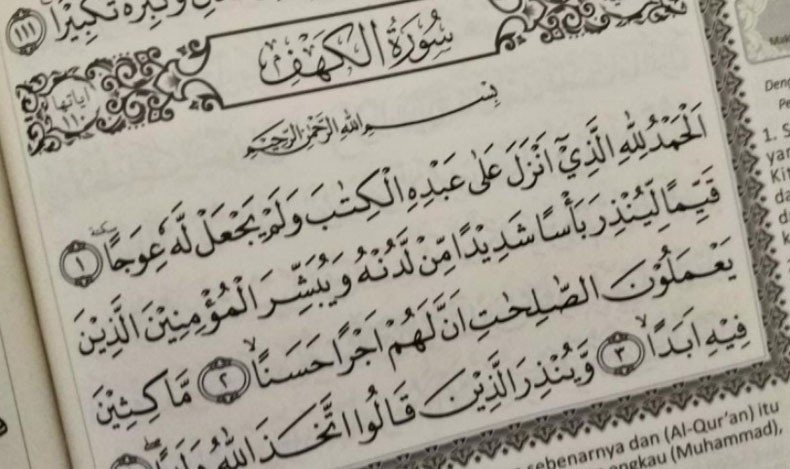 وَكَبِّرْهُ تَكْبِيْرًا ۝١١١
سُوْرَةُ الْكَهْفِ
اٰيَاتُهَا ١١٠
بِسْمِ اللّٰهِ الرَّحْمٰنِ الرَّحِيْمِ
اَلْحَمْدُ لِلّٰهِ الَّذِيْٓ اَنْزَلَ عَلٰى عَبْدِهِ الْكِتٰبَ وَلَمْ يَجْعَلْ لَّهٗ عِوَجًا ۜ ١
قَيِّمًا لِّيُنْذِرَ بَأْسًا شَدِيْدًا مِّنْ لَّدُنْهُ وَيُبَشِّرَ الْمُؤْمِنِيْنَ الَّذِيْنَ
يَعْمَلُوْنَ الصّٰلِحٰتِ اَنَّ لَهُمْ اَجْرًا حَسَنًاۙ ٢ مَّاكِثِيْنَ
فِيْهِ اَبَدًاۙ ٣ وَّيُنْذِرَ الَّذِيْنَ قَالُوا اتَّخَذَ اللّٰهُ وَلَدًا
Deng
Pe
1. S
yan
Kit
da
di
k
sebenarnya dan (Al-Qur'an) itu
engkau (Muhammad),